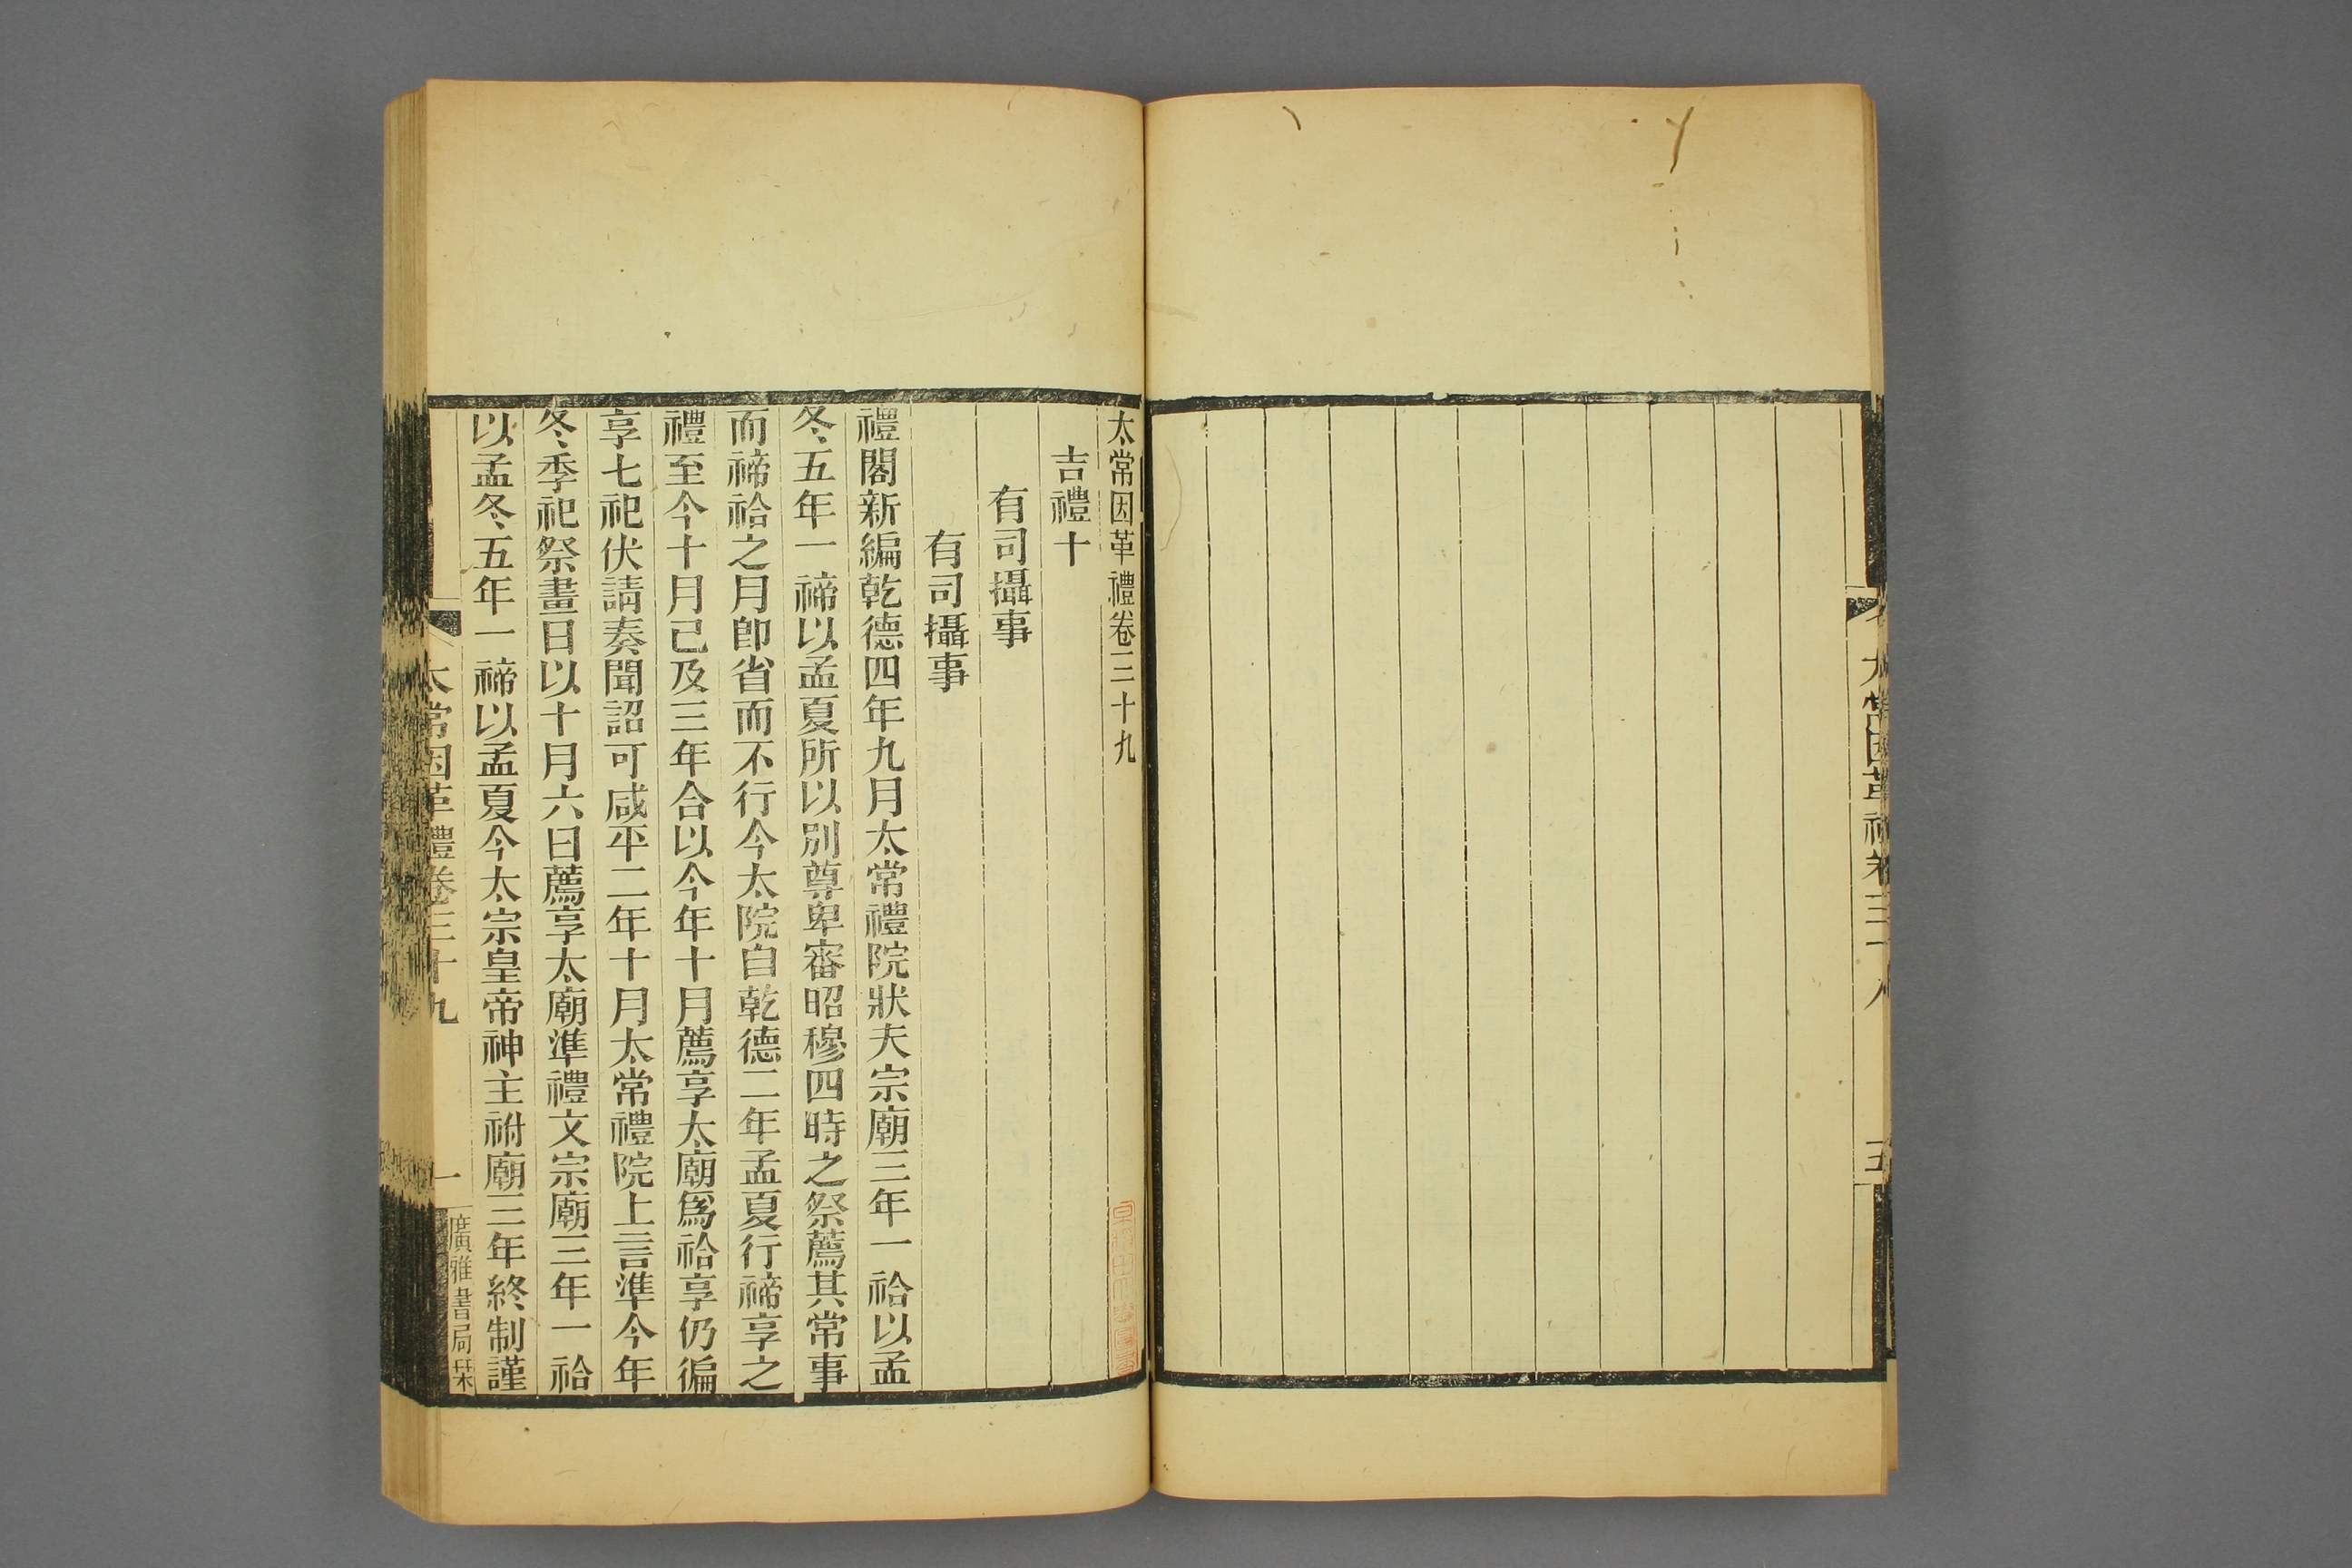 太常因革禮卷三十八
五
太常因革禮卷三十九
吉禮十
有司攝事
有司攝事
禮閣新編乾德四年九月太常禮院狀夫宗廟三年一祫以孟
冬五年一禘以孟夏所以別尊卑審昭穆四時之祭薦其常事
而禘祫之月卽省而不行今太院自乾德二年孟夏行禘享之
禮至今十月已及三年合以今年十月薦享太廟爲祫享仍徧
享七祀伏請奏聞詔可咸平二年十月太常禮院上言準今年
冬季祀祭畫日以十月六日薦享太廟準禮文宗廟三年一祫
以孟冬五年一禘以孟夏今太宗皇帝神主祔廟三年終制謹
太常因革禮卷三十九
一
廣雅書局栞